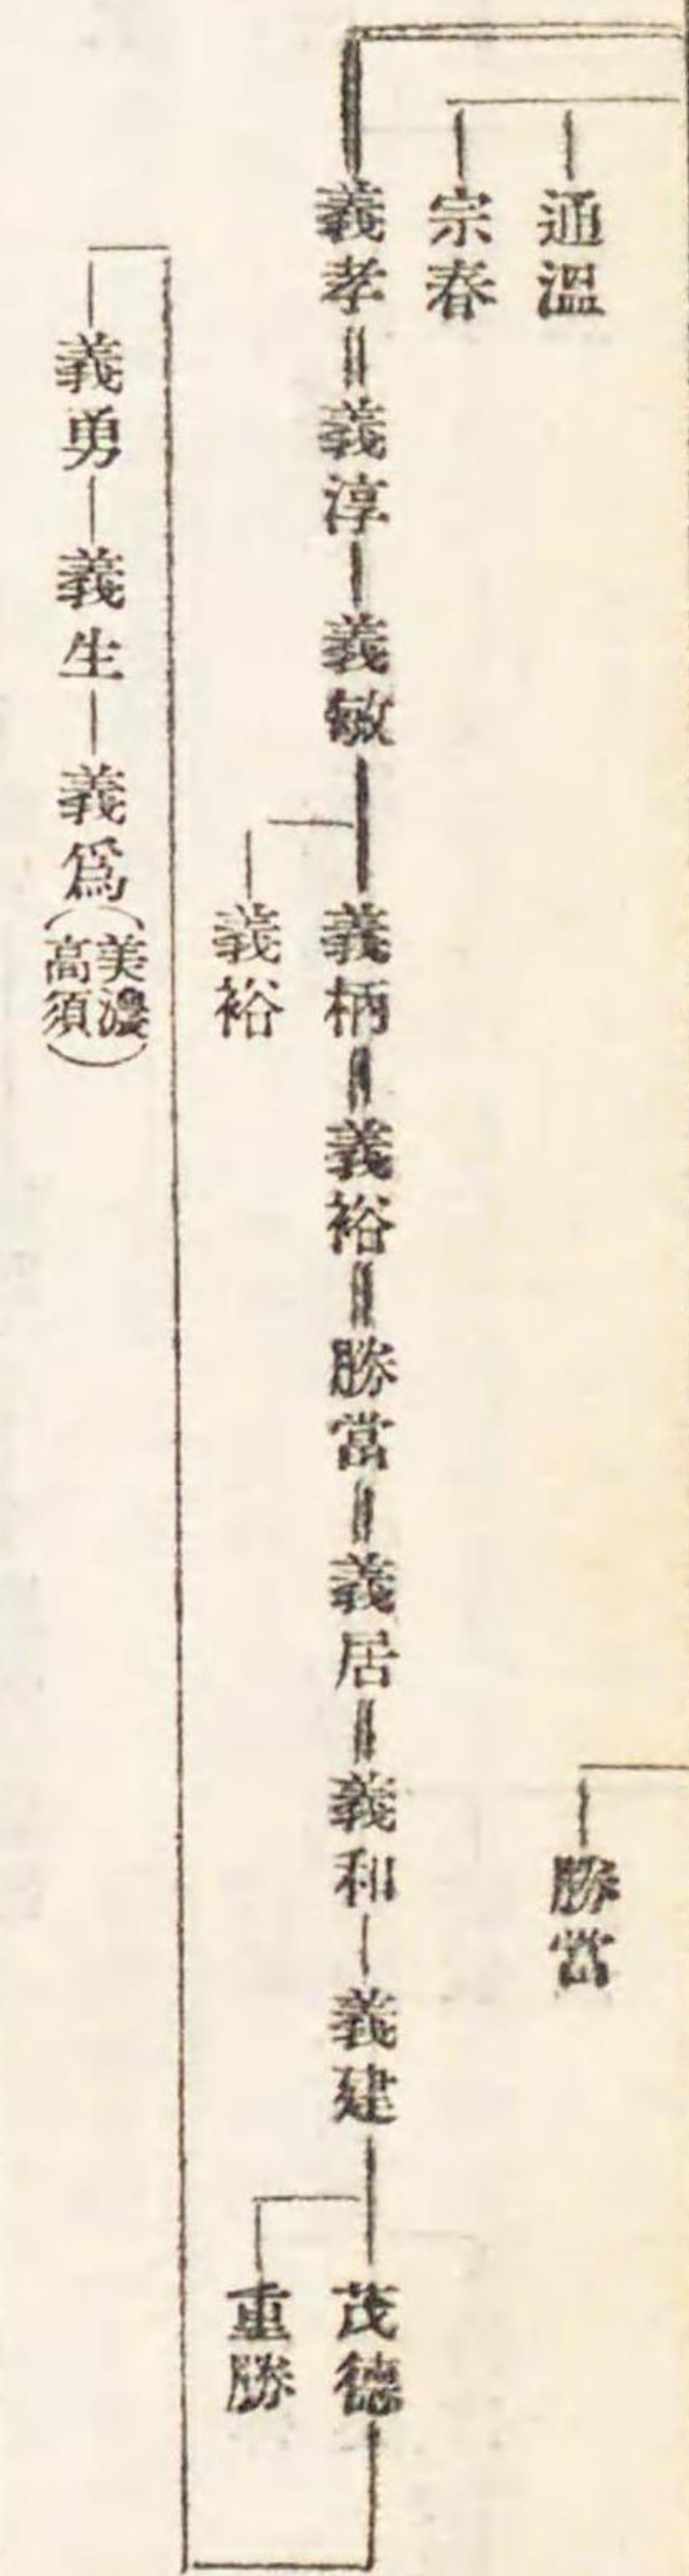 通溫
宗春
勝當
義孝 義淳 義敏 義柄 義裕 勝當 義居 義和 義建 茂德
義裕
重勝
義勇 義生 義爲(美濃高須)